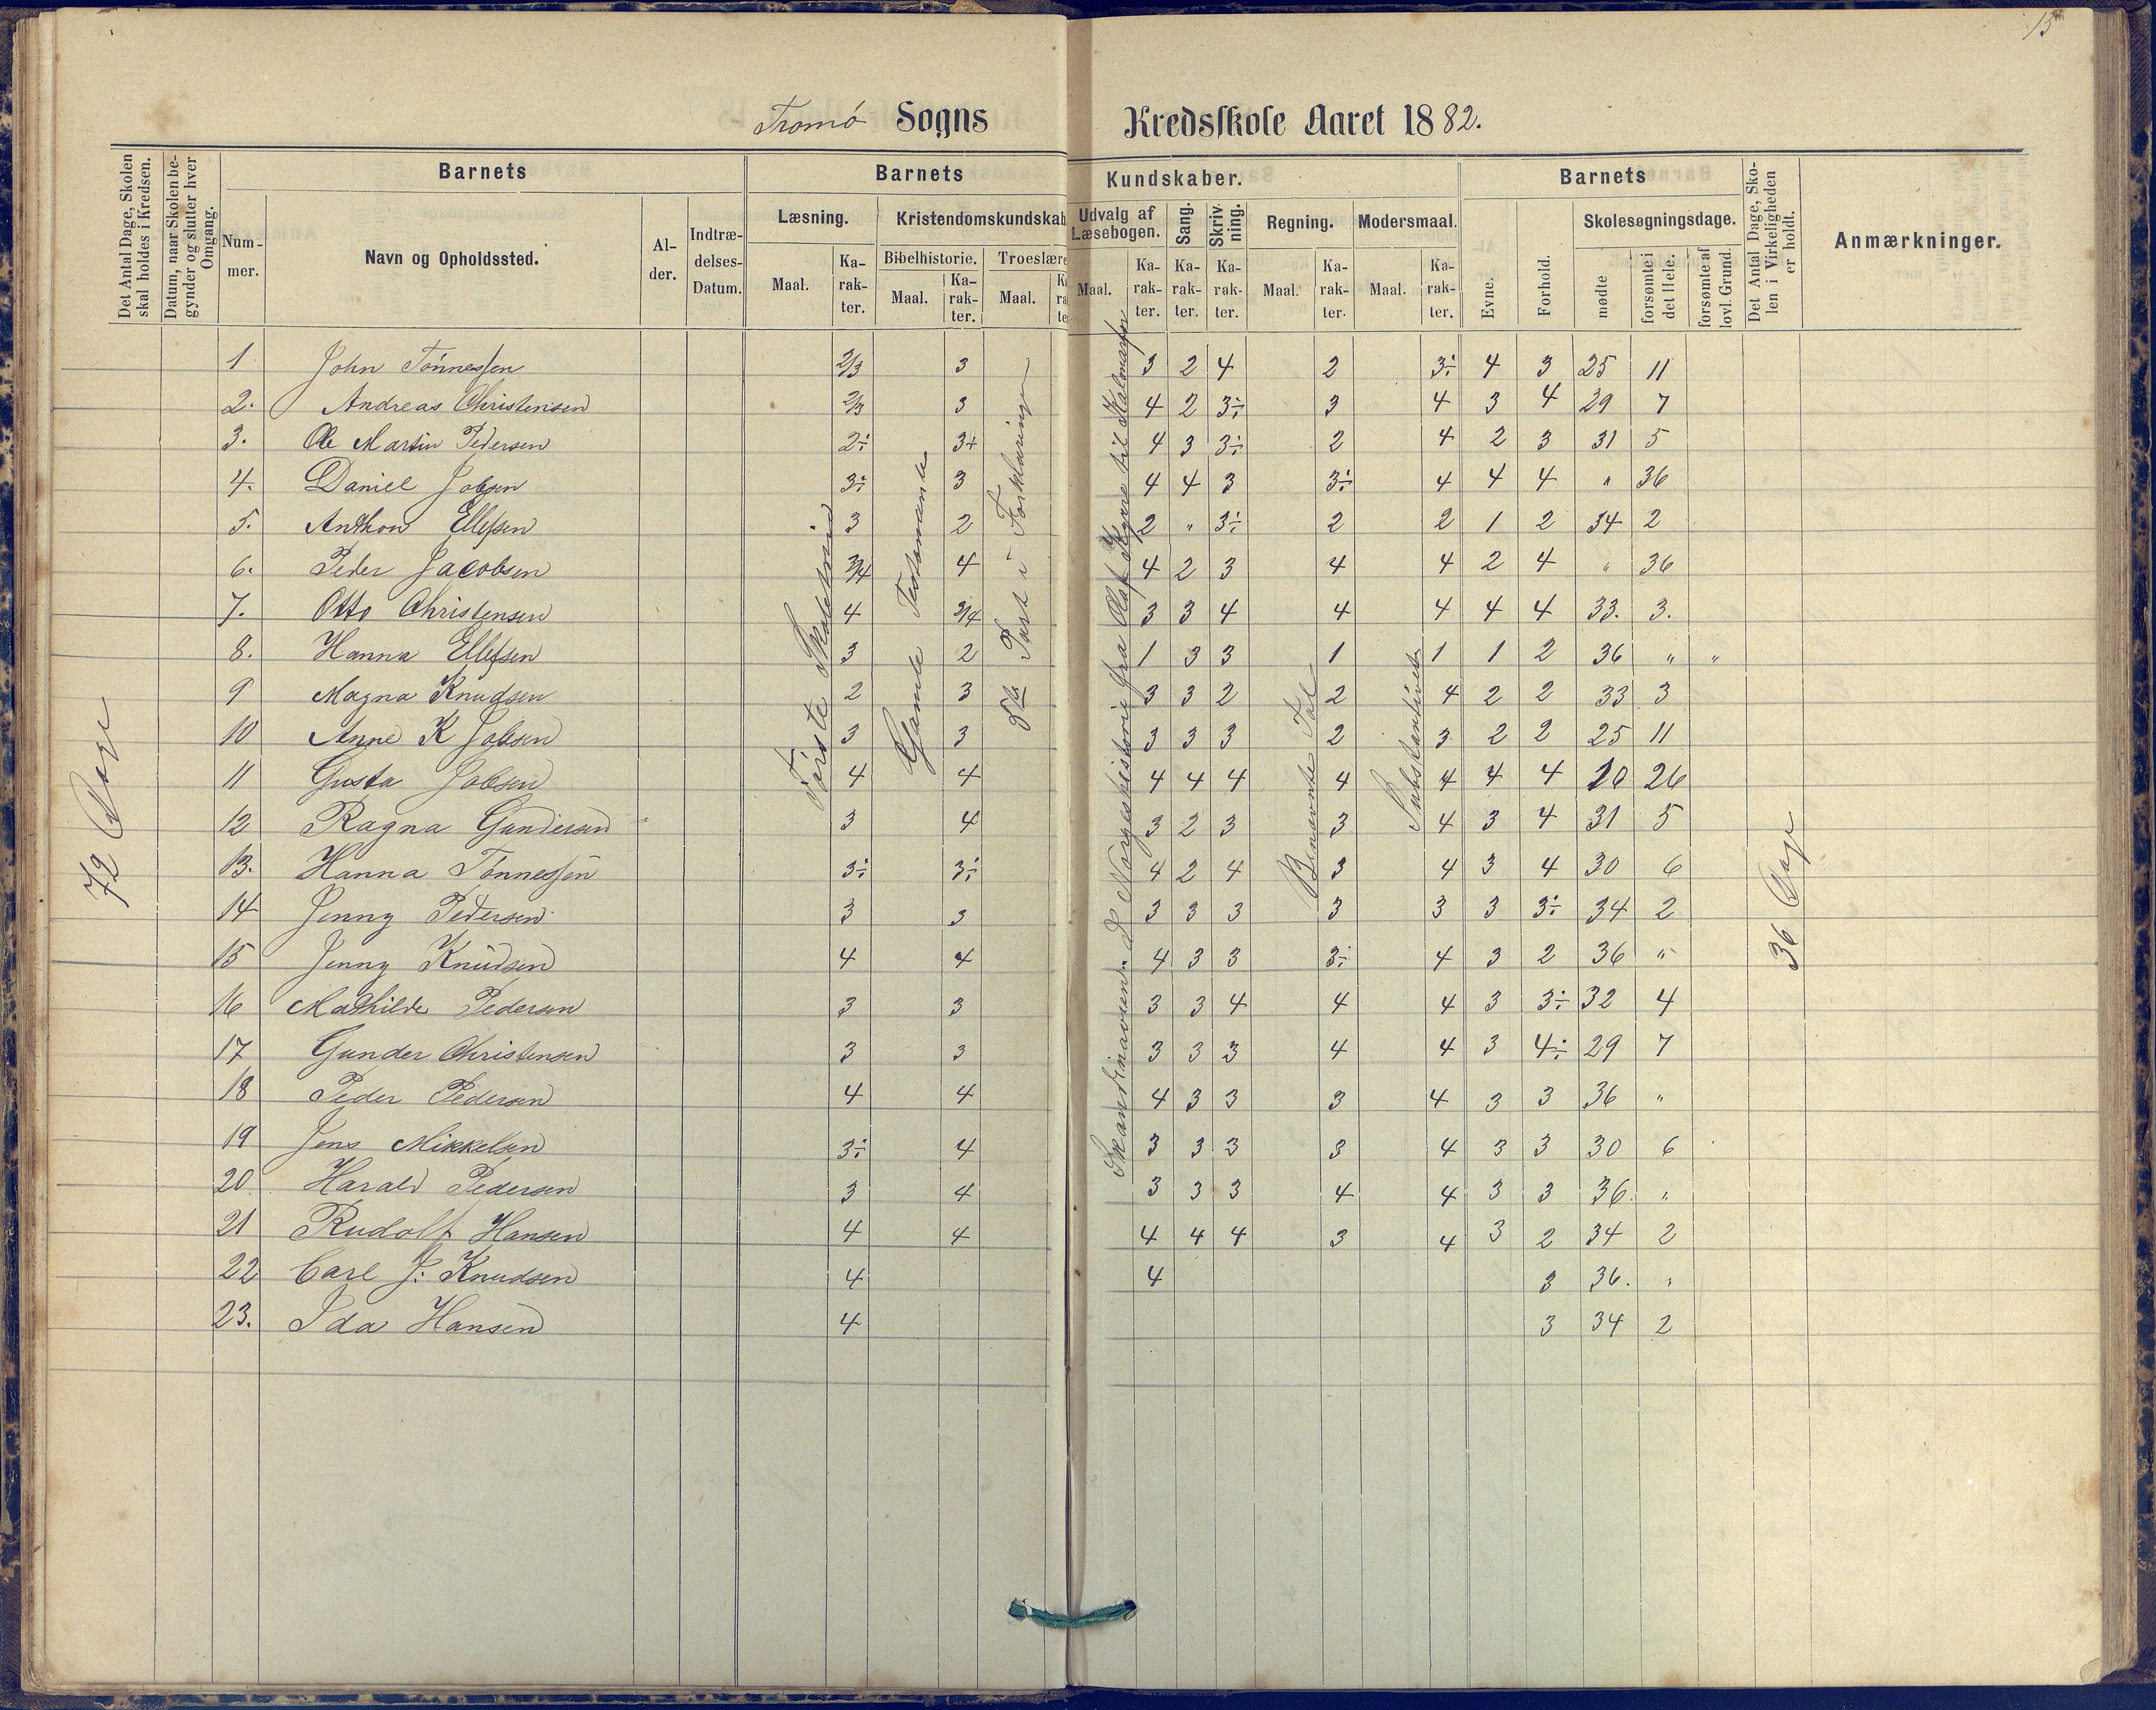 15
Tromø Sogns Kredsskole Aaret 1882.
Det Antal Dage, Skolen skal holdes i Kredsen.
Datum, naar Skolen begynder og slutter hver Omgang.
Barnets
Nummer.
Navn og Opholdssted.
Alder.
Indtrædelses-Datum.
Barnets Kundskaber.
Læsning.
Maal.
Karakter.
Kristendomskundskab
Bibelhistorie.
Maal.
Karakter.
Troeslære
Maal.
Udvalg af Læsebogen.
Maal.
Karakter.
Sang.
Karakter.
Skrivning.
Karakter.
Regning.
Maal.
Karakter.
Modersmaal.
Maal.
Karakter.
Barnets
Evne.
Forhold.
Skolesøgningsdage.
mødte
forsømte i det Hele.
forsømte af lovl. Grund.
Det Antal Dage, Skolen i Virkeligheden er holdt.
Anmærkninger.
72 Dage
Første Skoletrin
Gamle Testamente
8de Part i Forklaringen
Skandinavien. Norgeshistorie fra Olaf Kyrre til Kalmar
Benævnte Tal
Substantivet
36 Dage
1 John Tønnessen 2/3 3 3 2 4 2 3÷ 4 3 25 11
2. Andreas Christensen 2/3 3 4 2 3÷ 3 4 3 4 29 7
3. Ole Martin Pedersen 2÷ 3+ 4 3 3÷ 2 4 2 3 31 5
4. Daniel Jobsen 3÷ 3 4 4 3 3÷ 4 4 4 " 36
5. Anthon Ellefsen 3 2 2 " 3÷ 2 2 1 2 34 2
6. Peder Jacobsen 3/4 4 4 2 3 4 4 2 4 " 36
7. Otto Christensen 4 3/4 3 3 4 4 4 4 4 33. 3.
8. Hanna Ellefsen 3 2 1 3 3 1 1 1 2 36 " "
9 Magna Knudsen 2 3 3 3 2 2 4 2 2 33 3
10 Anne K Jobsen 3 3 3 3 3 2 3 2 2 25 11
11 Gusta Jobsen 4 4 4 4 4 4 4 4 4 10 26
12 Ragna Gundersen 3 4 3 2 3 3 4 3 4 31 5
13. Hanna Tønnessen 3÷ 3÷ 4 2 4 3 4 3 4 30 6
14 Jenny Pedersen 3 3 3 3 3 3 3 3 3÷ 34 2
15 Jenny Knudsen 4 4 4 3 3 3÷ 4 3 2 36 "
16 Mathilde Pedersen 3 3 3 3 4 4 4 3 3÷ 32 4
17 Gunder Christensen 3 3 3 3 3 4 4 3 4÷ 29 7
18 Peder Pedersen 4 4 4 3 3 3 4 3 3 36 "
19 Jens Mikkelsen 3÷ 4 3 3 3 3 4 3 3 30 6
20 Harald Pedersen 3 4 3 3 3 4 4 3 3 36. "
21 Rudolf Hansen 4 4 4 4 4 3 4 3 2 34 2
22 Carl J: Knudsen 4 4 3 36. "
23. Ida Hansen 4 3 34 2